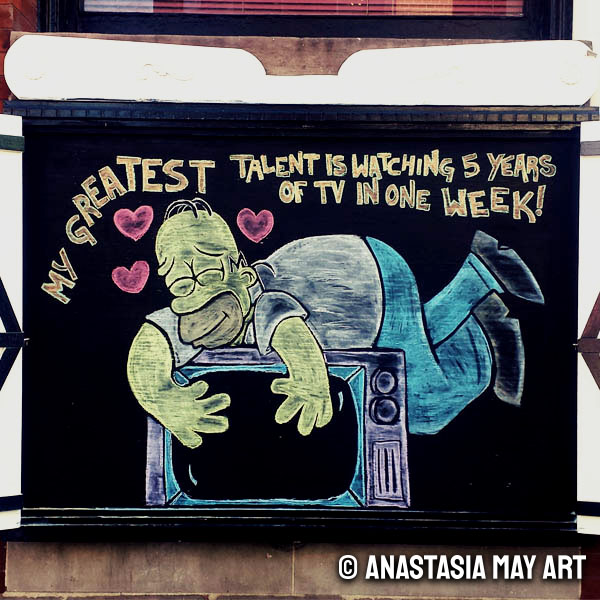 MY GREATEST
TALENT IS WATCHING 5 YEARS
OF TV IN ONE WEEK!
© ANASTASIA MAY ART